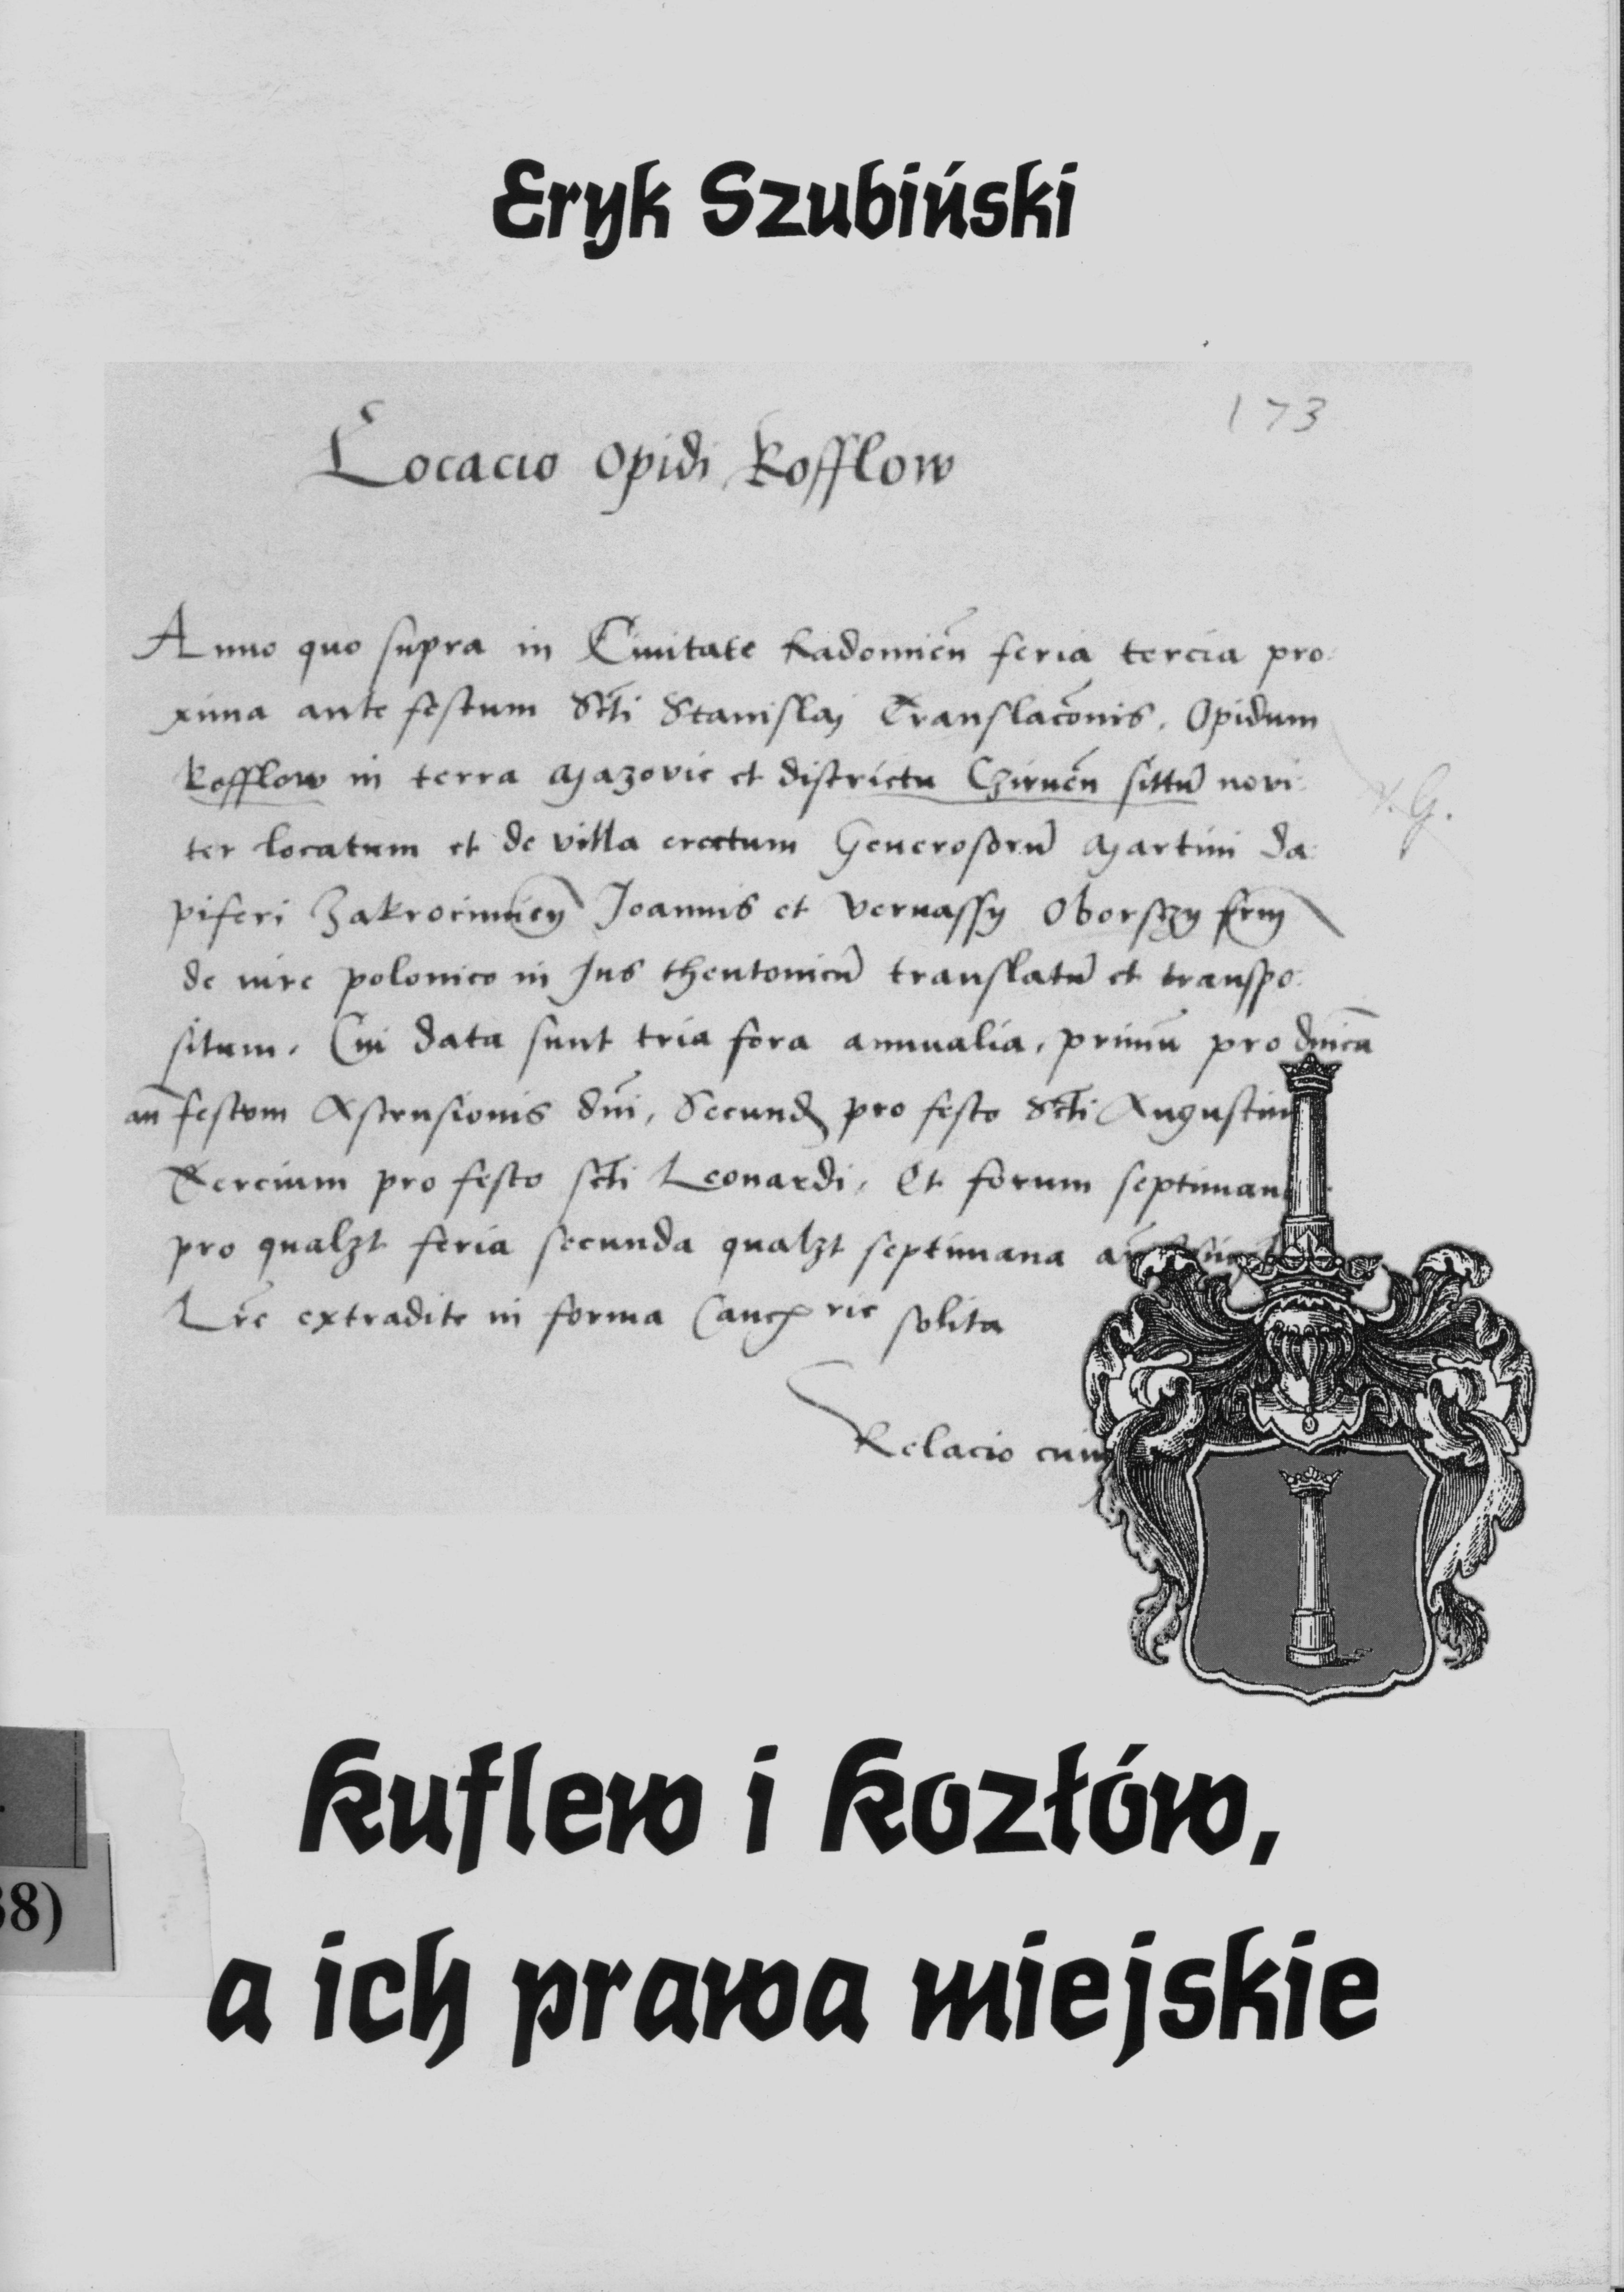 Eryk Szubiński
173
Locacio Opidi Kofflow
Anno quo supra in Civitate Radomień feria tercia pro:
xima ante festum Scti Stanislaj Translacõnis. Opidum
Kofflow in terra Mazovie et districtu Czirnen̄ sittu᷉ novi:
ter locatum et de villa erectum Generosoru᷉ Martini da:
piferi Joannis et
de iure polonico in Jus theutonicu᷉ translatu᷉ et transpo:
situm. Cui data sunt tria fora annualia, primu᷉ pro dnica
an̄ festum Ascensionis dn̄i, Secund pro festo Scti Augustini
Tercium pro festo scti Leonardi, Et forum septiman
pro qualzt feria secunda qualzt septimana
Lre᷉ extradite in forma Canc rie solita
Relacio cuius
v. G.
Kuflew i Kozłów,
a ich prawa miejskie
38)